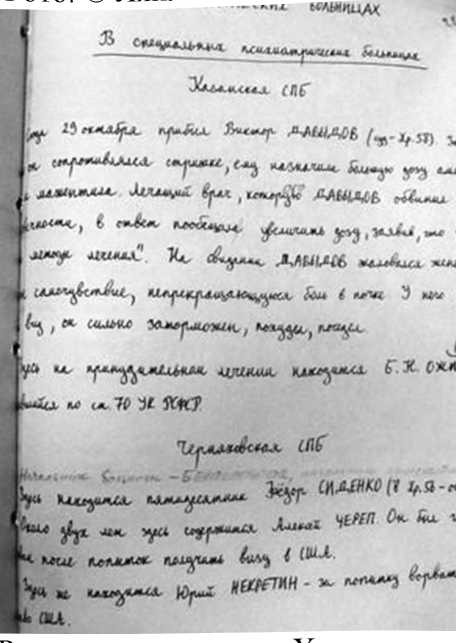 БОЛЬНИЦАХ
В специальных психиатрических больницах
Казанская СПБ
29 октября прибыл Виктор ДАВЫДОВ (суд - Хр.58). За
он сопротивлялся стрижке, ему назначили большую дозу
и мажептила. Лечащий врач, которую ДАВЫДОВ обвинил
в ответ пообещала увеличить дозу, заявив, что
методы лечения". На свидании ДАВЫДОВ жаловался жене
самочувствие, непрекращающуюся боль в почке. У него
вид, он сильно заторможен, похудел, поседел.
Здесь на принудительном лечении находится Б.Н.
по ст. 70 УК РСФСР.
Черняховская СПБ
Начальник больницы –
Здесь находится пятидесятник Фёдор СИДЕНКО (Хр.56
Около двух лет здесь содержится Алексей ЧЕРЕП. Он был
после попыток получить визу в США.
Здесь же находится Юрий НЕКРЕТИН - за попытку
США.